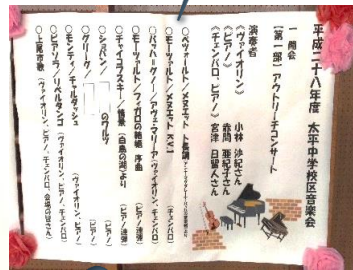 平成二十八年度 太平中学校区音楽会
一 開会
【第一部】アウトリーチコンサート
演奏者
《ヴァイオリン》 小林 沙紀さん
《ピアノ》 赤間 亜紀子さん
《チェンバロ、ピアノ》 宮津 日留人さん
○ペッツォールト/メヌエット ト長調
○モーツァルト/メヌエット KV1 (チェンバロ)
○バッハ=グノー/アヴェ・マリーア(ヴァイオリン、チェンバロ)
○モーツァルト/フィガロの結婚 序曲 (ピアノ連弾)
○チャイコフスキー/情景(白鳥の湖)より (ピアノ連弾)
○ショパン/ のワルツ (ピアノ)
○グリーグ/ (ピアノ)
○モンティ/チャルダッシュ (ヴァイオリン、ピアノ)
○ピアソラ/リベルタンゴ (ヴァイオリン、ピアノ、チェンバロ)
○上尾市歌 (ヴァイオリン、ピアノ、チェンバロ、会場の皆さん)